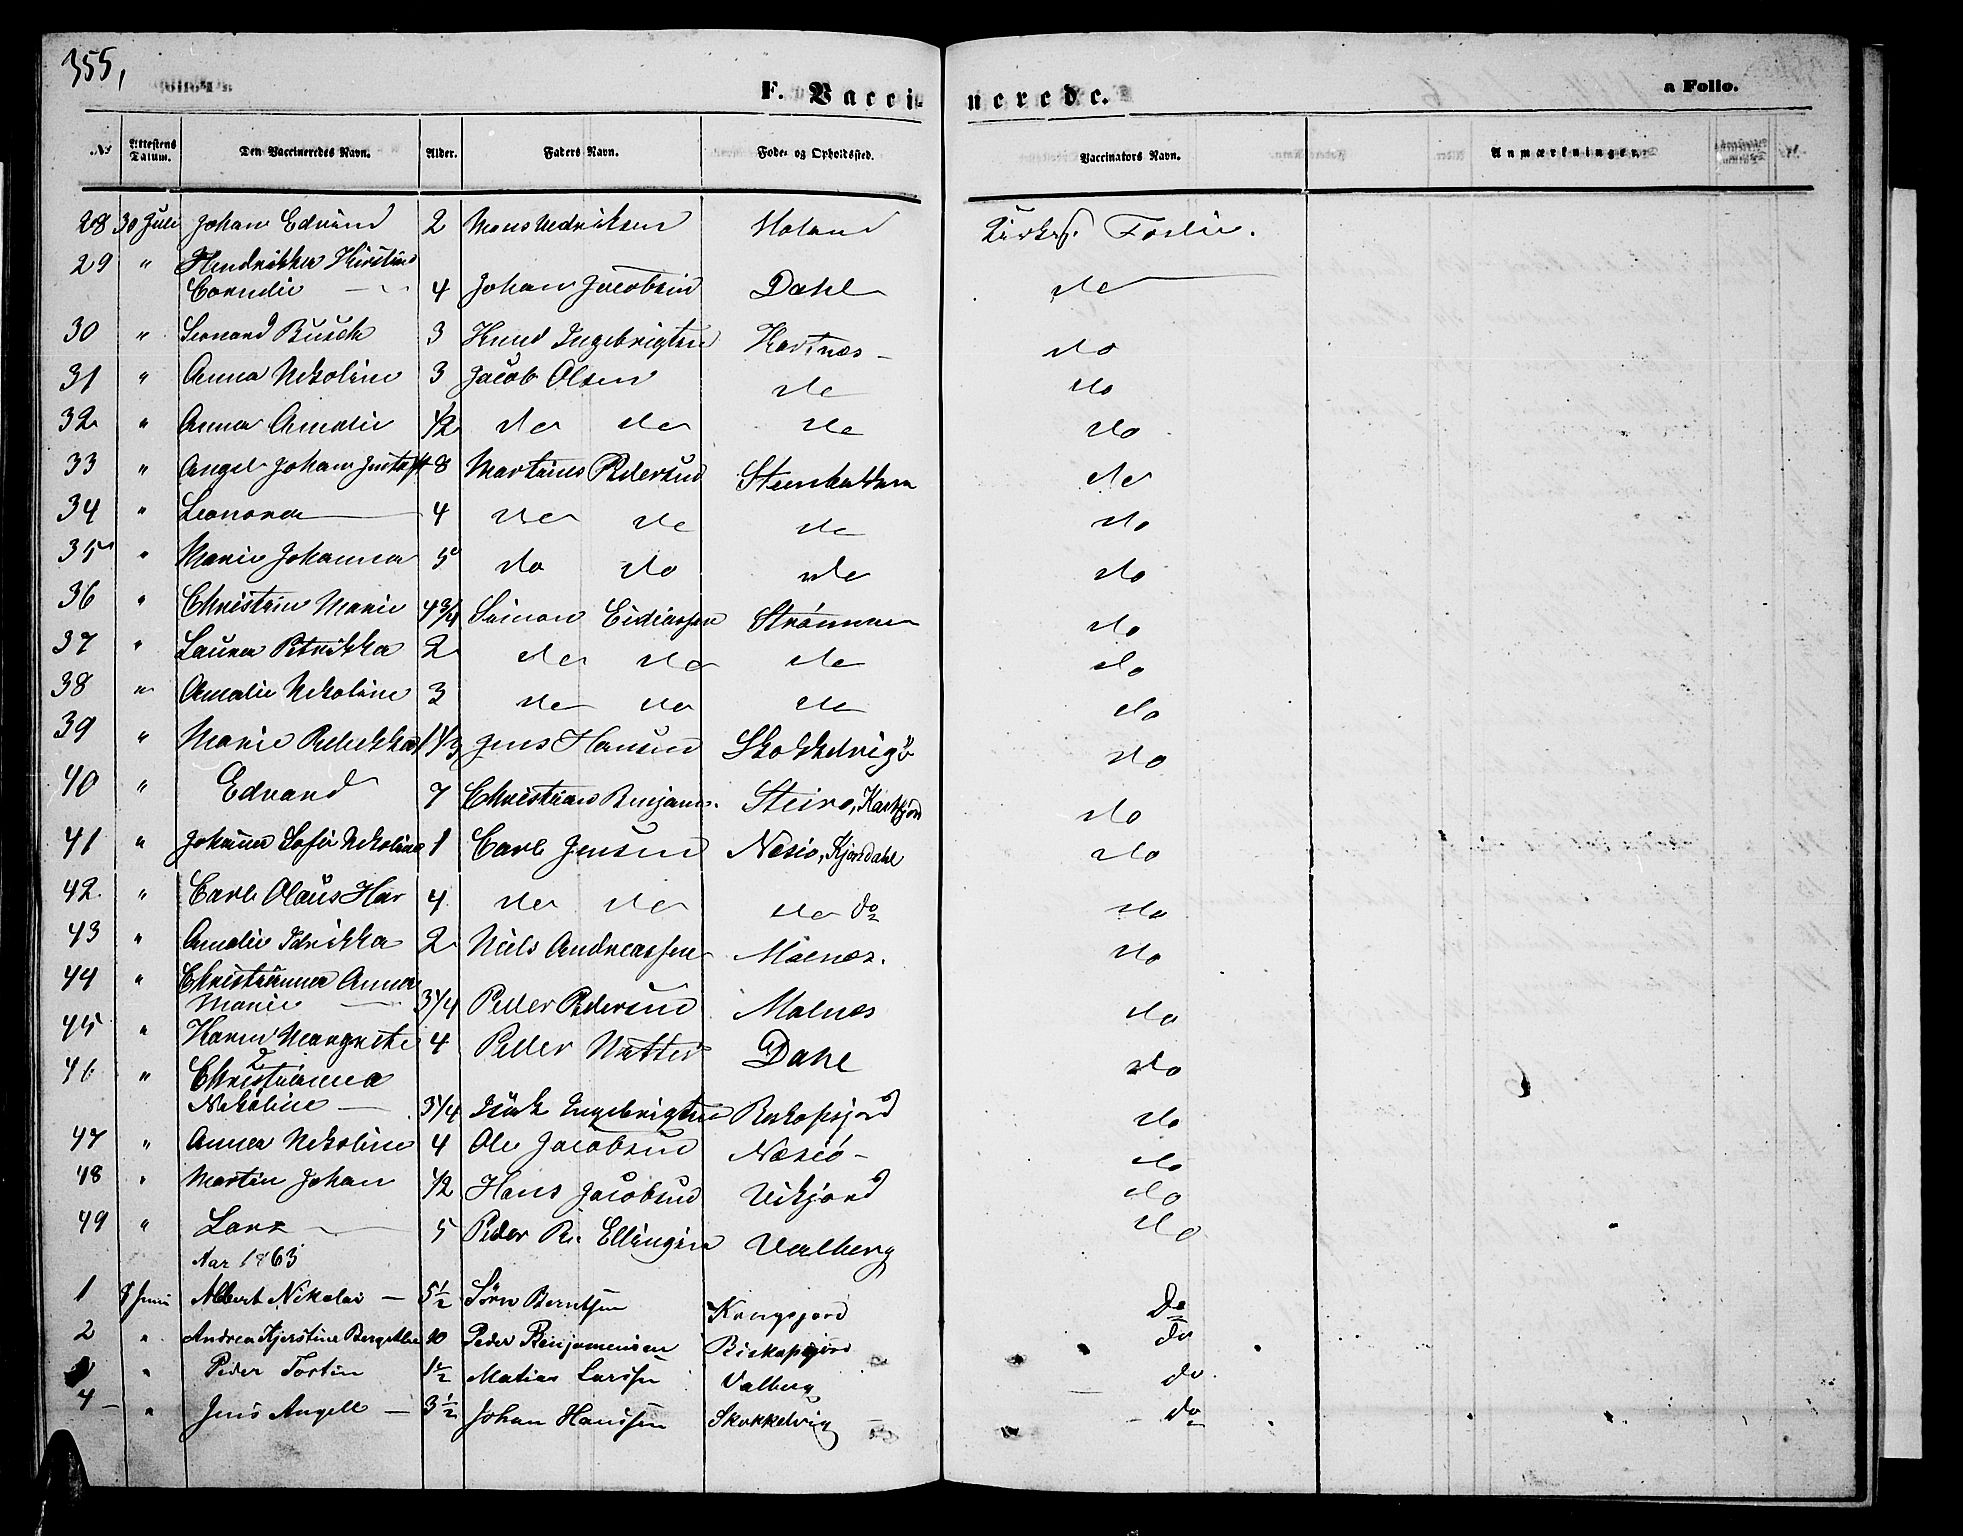 355,
F. Vaccinerede.
a Folio.
No Attestens Datum. Den Vaccineredes Navn. Alder. Faders Navn. Føde- og Opholdssted. Vaccinators Navn. Anmærkninger.
28 30 Juli Johan Edvard 2 Mons Hedriksen Holand Kirks. Foslie.
29 " Hendrikka Kirstine
Cornelie 4 Johan Jacobsen Dahl do
30 " Leonard Busch 3 Knud Ingebrigtsen Hartnæs do
31 " Anna Nekoline 3 Jacob Olsen do do
32 " Anna Amalie 1/2 do do do do
33 " Angel Johan Gustaf 8 Martinus Pedersen do
34 " Leonora 4 do do do do
35 " Marie Johanna 5 do do do do
36 " Christine Marie 4 3/4 Simon Eidiassen Strømmen do
37 " Laura Petrikka 2 do do do do
38 " Amalie Nekoline 3 do do do do
39 " Marie Rebekka 1 1/3 Jens Hansen Skokkelvig do
40 " Edvard 7 Christian Benjam. Steiro, Kartfjord do
41 " Johanna Sofie Nekoline 1 Carl Jensen Næsio, Kjørdahl do
42 " Carl Olaus Har 4 do do do do do
43 " Amalie Idrikka 2 Niels Andreassen Malnes. do
44 " Christianna Anna
Marie 3 1/4 Peder Pedersen Malnes do
45 " Karen Margrete 4 Peder Dahl do
46 " Christianna
Nekoline 3 1/4 Isak Ingebrigtsen Beskopsjord do
47 " Anna Nekoline 4 Ole Jacobsen Næsiö do
48 " Martin Johan 1/2 Hans Jacobsen Vikjord do
49 " Lars 5 Peder Ellingsen Valberg do
Aar 1863
1 8 Juni Albert Nikolai 5 1/2 Sørn Berntsen Kongsjord Do
2 " Andrea Kjerstine Bergethe 10 Peder Benjamensen Biskopsjord do
" Peder Tostin 1 1/2 Matias Larssen Valberg do
4 " Jens Angell 3 1/2 Johan Hanssen Skokkelvig do